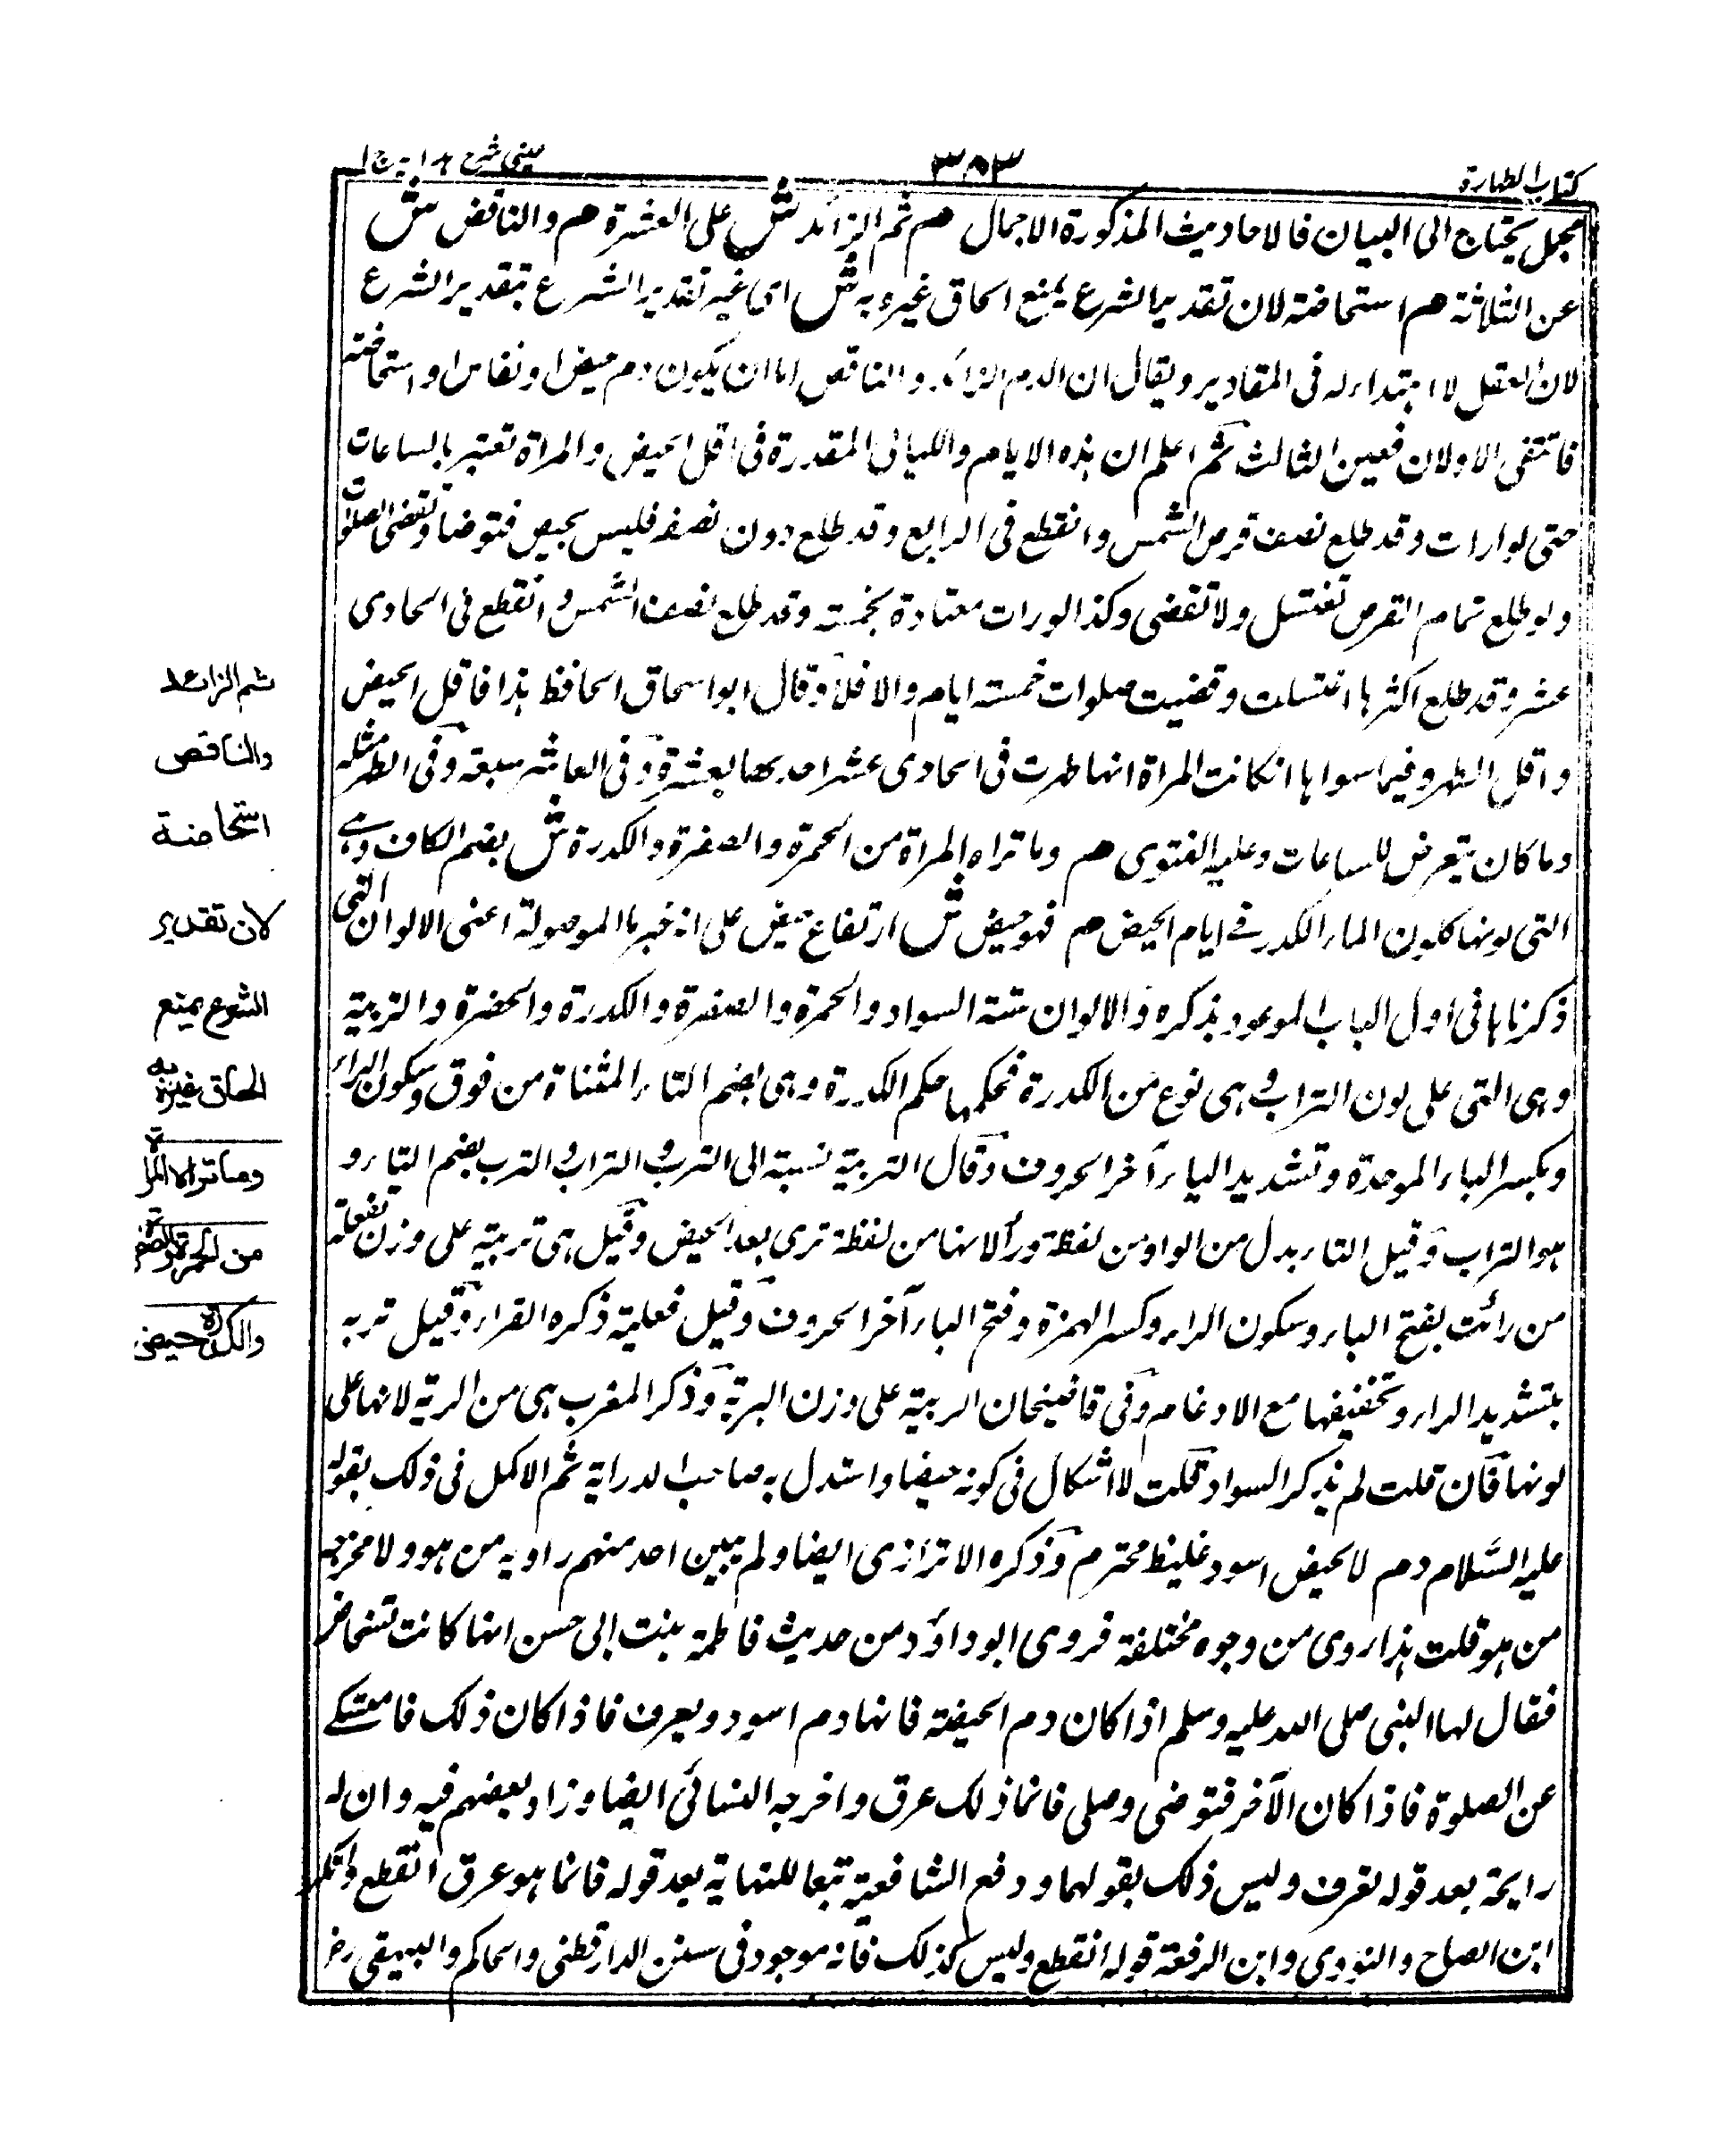 كتاب الطهارة
٣٨٣
عینی شرح هدایة ج ١
مجمل يحتاج الى البيان فالاحاديث المذكورة الاجمال هم ثم الزائد ش على العشرة هم والناقص ش
عن الثلاثة هم استحاضة لان تقدير الشرع يمنع الحاق غيره به ش اى غير تقدير الشرع بتقدير الشرع
لان العقل لا ابتداء له فى المقادير ويقال ان الدم الزائد والناقص اما ان يكون دم حيض او نفاس او استحاضة
فانتفى الاولان فعين الثالث ثم اعلم ان هذه الايام والليالى المقدرة فى اقل الحيض والمرأة تعتبر بالساعات
حتى لو ارات وقد طلع نصف قرص الشمس وانقطع فى الرابع وقد طلع دون نصفه فليس بحيض فتوضأ وتقضى الصلوات
ولو طلع تمام القرص تغتسل ولا تقضى وكذا لو رات معتادة بخمسة وقد طلع نصف الشمس وانقطع فى الحادى
عشر وقد طلع اكثرها اغتسلت وقضيت صلوات خمسة ايام والا فلا وقال ابو اسحاق الحافظ هذا فاقل الحيض
واقل الطهر وفيما سواها انكانت المرأة انها طهرت فى الحادى عشر اخذها بعشرة وفى العاشر سبعة وفى الطهر مثله
وما كان يتعرض للساعات وعليه الفتوى هم وما تراه المرأة من الحمرة والصفرة والكدرة ش بضم الكاف وهى
التى لونها كلون الماء الكدر فى ايام الحيض هم فهو حيض ش ارتفاع حيض على انه خبر ما الموصولة اعنى الالوان التى
ذكرناها فى اول الباب الموعود بذكره والالوان ستة السواد والحمرة والصفرة والكدرة والخضرة والتربية
وهى التى على لون التراب وهى نوع من الكدرة فحكمها حكم الكدرة وهى بضم التاء المثناة من فوق وسكون الراء
وبكسر الباء الموحدة وتشديد الياء آخر الحروف وقال التربية نسبة الى الترب والتراب والترب بضم التاء و
هو التراب وقيل التاء بدل من الواو من لفظة ورأ لانها من لفظة ترى بعد الحيض وقيل هى تربية على وزن تفعلة
من رأيت بفتح الباء وسكون الراء وكسر الهمزة وفتح الياء آخر الحروف وقيل فعلية ذكره الفراء وقيل تربه
بتشديد الراء وتخفيفها مع الادغام وفى قاضيخان الربية على وزن البرية وذكر المغرب هى من الرية لانها على
لونها فان قلت لم يذكر السواد قلت لا اشكال فى كونه حيضا واستدل به صاحب الدراية ثم الاكمل فى ذلك بقوله
عليه السلام دم لا لحيض اسود غليظ محترم وذكره الاترازى ايضا ولم يبين احد منهم راويه من هو ولا مخرجه
من هو قلت هذا روى من وجوه مختلفة فروى ابو داؤد من حديث فاطمة بنت ابى حسن انها كانت تستحاض
فقال لها النبى صلى الله عليه وسلم اذا كان دم الحيضة فانها دم اسود ويعرف فاذا كان ذلك فامسكى
عن الصلوة فاذا كان الآخر فتوضى وصلى فانما ذلك عرق واخرجه النسائى ايضا وزاد بعضهم فيه وان له
رايحة بعد قوله تعرف وليس ذلك بقولها ودفع الشافعية تبعا للنهاية بعد قوله فانما هو عرق انقطع وانكر
ابن الصلاح والنووى وابن الرفعة قوله انقطع وليس كذلك فانه موجود فى سنن الدارقطنى والحاكم والبيهقى رض
ثم الزائد
والناقص
استحاضة
لان تقدير
الشرع يمنع
الحاق غيره به
وما تراه المرأة
من الحمرة والصفرة
والكدرة حيض